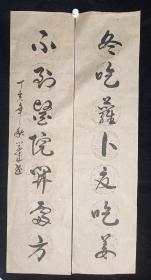 冬吃蘿卜夏吃姜
不到醫院開處方
丁亥年秋